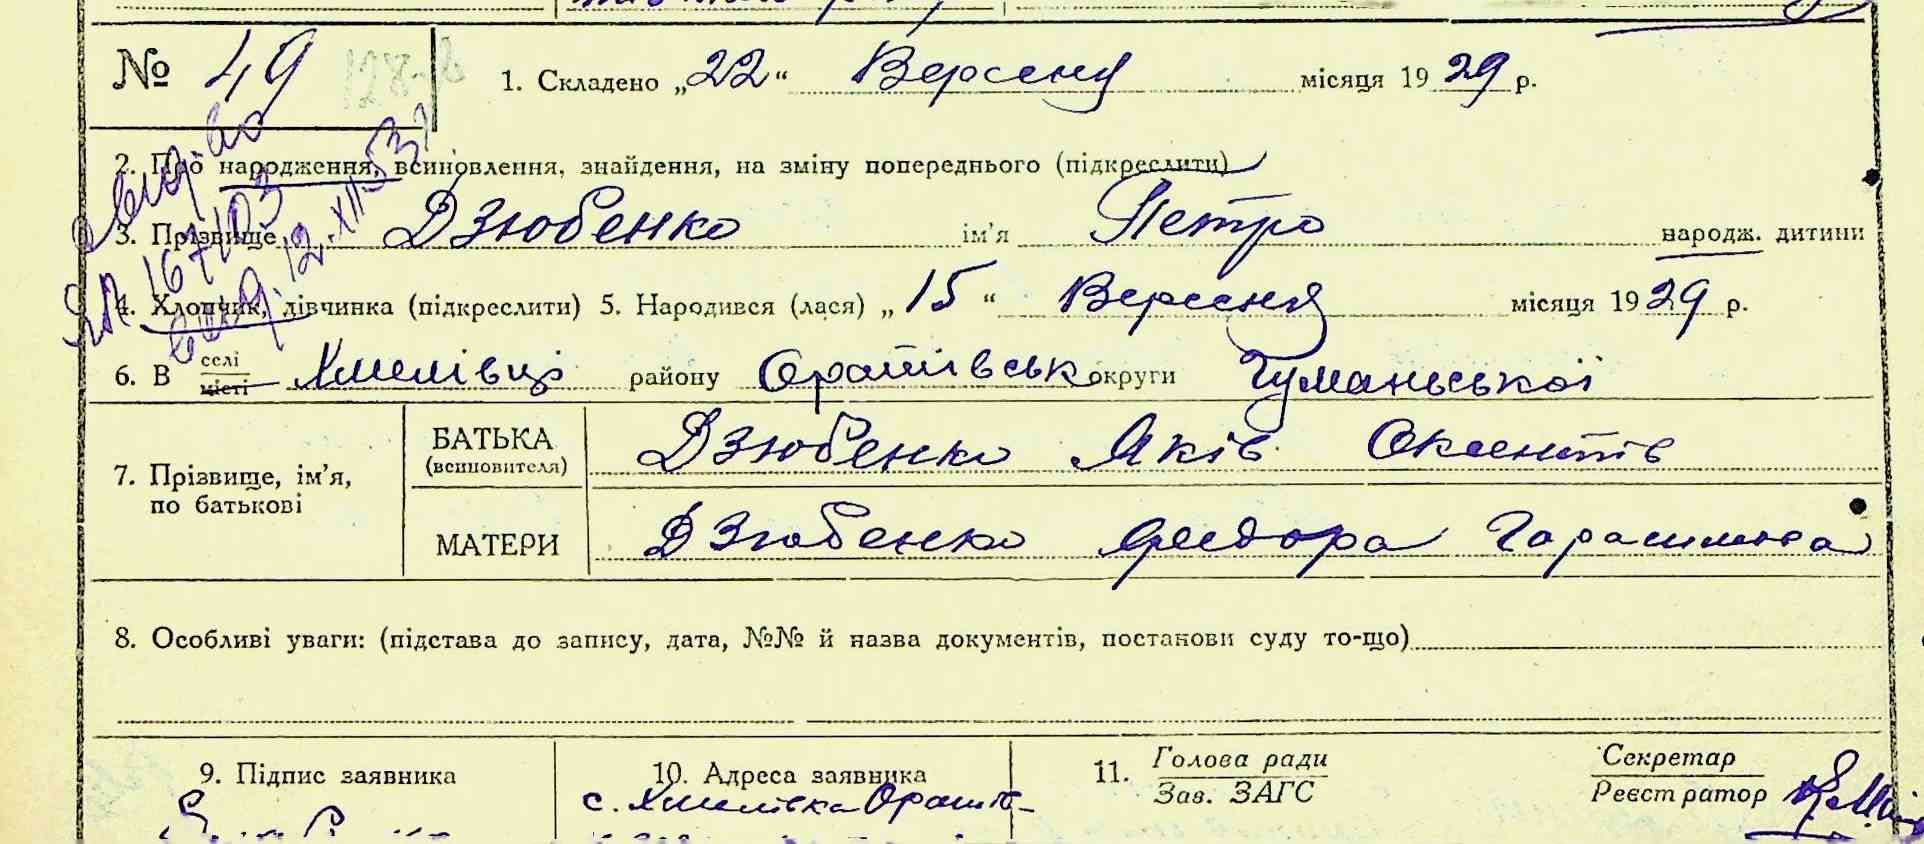 № 49
1. Складено „22“ Вересня місяця 1929 р.
2. Про народження, всиновлення, знайдення, на зміну попереднього (підкреслити)
3. Прізвище Дзюбенко ім'я Петро народж. дитини
4. Хлопчик, дівчинка (підкреслити) 5. Народився (лася) „15“ Вересня місяця 1929 р.
6. В селі місті Хмелівці району Оратівськ округи Гуманьської
7. Прізвище, ім'я, по батькові
БАТЬКА (всиновителя) Дзюбенко Яків Оксентів
МАТЕРИ Дзюбенко Федора Гарасимова
8. Особливі уваги: (підстава до запису, дата, №№ й назва документів, постанови суду то-що)
9. Підпис заявника
10. Адреса заявника
с. Хмелівка Орат-
11. Голова ради
Зав. ЗАГС
Секретар
Реєстратор
свід-во
ЯЛ 167103
вид. 12.XII.53